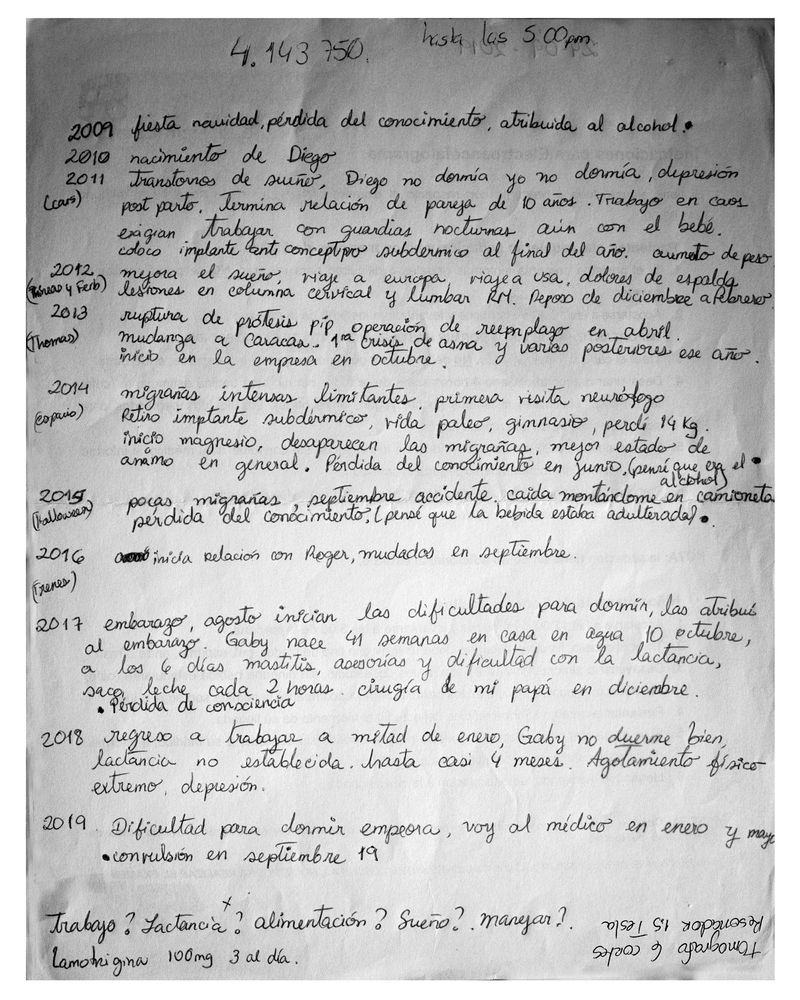 4.143 750.
hasta las 5:00pm
2009 fiesta navidad, pérdida del conocimiento, atribuida al alcohol.
2010 nacimiento de Diego
2011 transtornos de sueño, Diego no dormía yo no dormía, depresión
(cars) post parto. Termina relación de pareja de 10 años. Trabajo en caos
exigian trabajar con guardias nocturnas aún con el bebé.
coloco implante anti conceptivo subdermico al final del año. aumento de peso
2012 mejora el sueño, viaje a europa, viaje a usa, dolores de espalda
(Phineas y Ferb) lesiones en columna cervical y lumbar RM. Reposo de diciembre a febrero.
2013 ruptura de prótesis pip operación de reemplazo en abril.
(Thomas) mudanza a Caracas. 1ra crisis de asma y varias posteriores ese año.
inicio en la empresa en octubre.
2014 migrañas intensas limitantes, primera visita neurólogo
(espacio) Retiro implante subdérmico, vida paleo, gimnasio, perdí 14 Kg.
inicio magnesio, desaparecen las migrañas, mejor estado de
anámo en general. Pérdida del conocimiento en junio. (pensé que era el
alcohol)
2015 pocas migrañas, septiembre accidente caida montándome en camioneta
(Halloween) pérdida del conocimiento, (pensé que la bebida estaba adulterada).
2016 inicia relación con Roger, mudados en septiembre.
(Trenes)
2017 embarazo, agosto inician las dificultades para dormir, las atribuí
al embarazo. Gaby nace 41 semanas en casa en agua 10 octubre,
a los 6 días mastitis, asesorías y dificultad con la lactancia,
saco leche cada 2 horas. cirugía de mi papá en diciembre.
• Pérdida de consciencia
2018 regreso a trabajar a mitad de enero, Gaby no duerme bien,
lactancia no establecida. hasta casi 4 meses. Agotamiento físico
extremo, depresión.
2019 Dificultad para dormir empeora, voy al médico en enero y mayo
• convulsión en septiembre 19
Trabajo? Lactancia? x alimentación? Sueño? manejar?
Lamotrigina 100mg 3 al día.
Tomografo 6 cortes
Resonador 1.5 Tesla